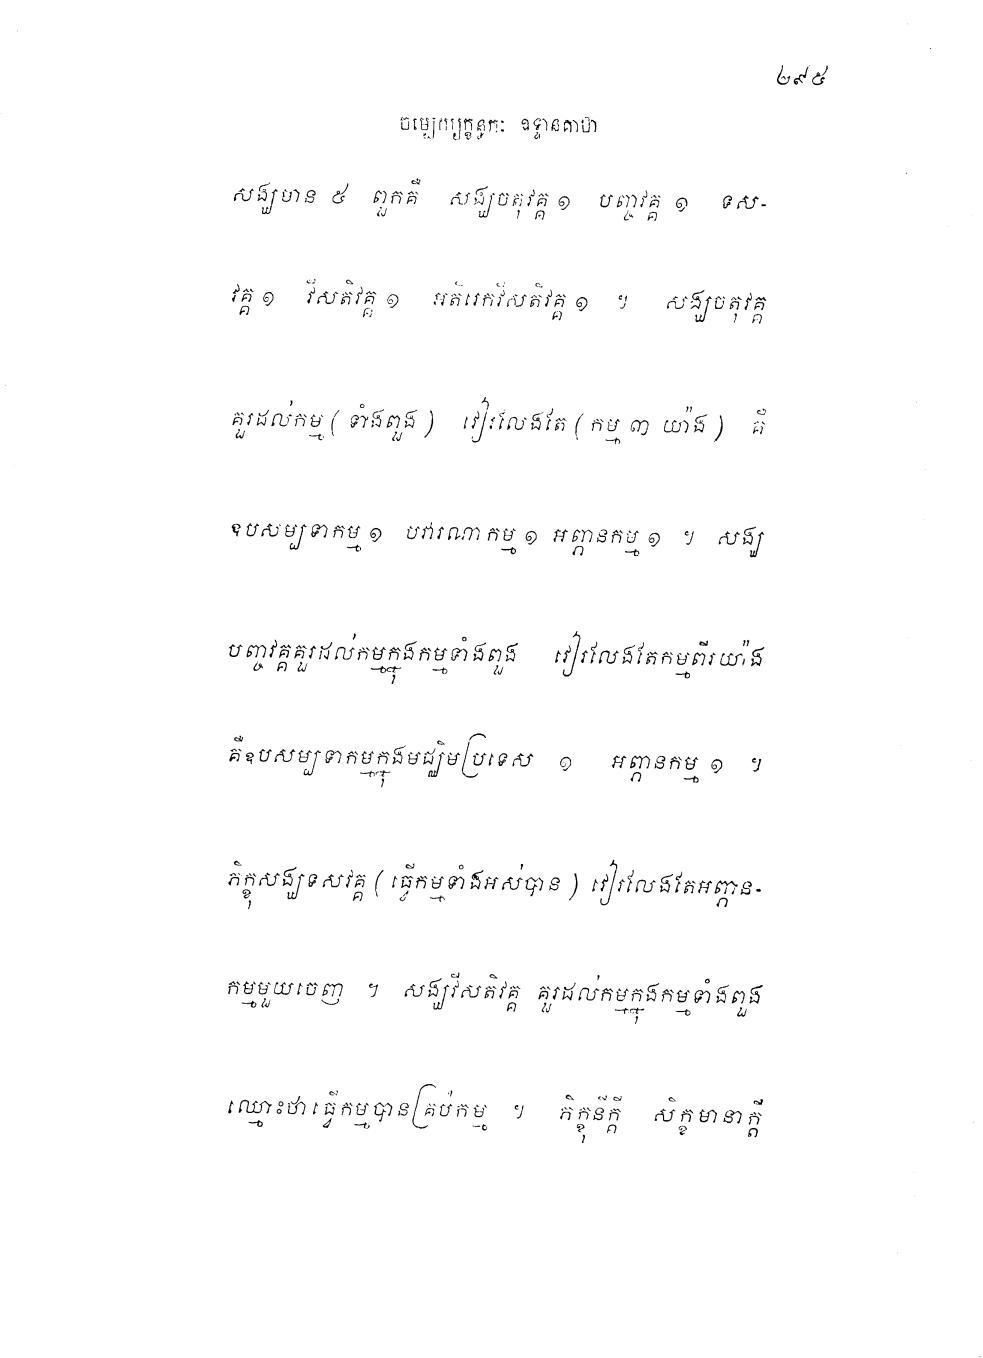 ២៩៥
ចម្បេយ្យក្ខន្ធកៈ ឧទ្ទានគាថា
សង្ឃមាន ៥ ពួកគឺ សង្ឃចតុវគ្គ ១ បញ្ចវគ្គ ១ ទស-
វគ្គ ១ វីសតិវគ្គ ១ អតិរេកវីសតិវគ្គ ១ ។ សង្ឃចតុវគ្គ
គួរដល់កម្ម ( ទាំងពួង ) វៀរលែងតែ ( កម្ម ៣ យ៉ាង ) គឺ
ឧបសម្បទាកម្ម ១ បវារណាកម្ម ១ អព្ភានកម្ម ១ ។ សង្ឃ
បញ្ចវគ្គគួរដល់កម្មក្នុងកម្មទាំងពួង វៀរលែងតែកម្មពីរយ៉ាង
គឺឧបសម្បទាកម្មក្នុងមជ្ឈិមប្រទេស ១ អព្ភានកម្ម ១ ។
ភិក្ខុសង្ឃទសវគ្គ ( ធ្វើកម្មទាំងអស់បាន ) វៀរលែងតែអព្ភាន-
កម្មមួយចេញ ។ សង្ឃវីសតិវគ្គ គួរដល់កម្មក្នុងកម្មទាំងពួង
ឈ្មោះថាធ្វើកម្មបានគ្រប់កម្ម ។ ភិក្ខុនីក្តី សិក្ខមានាក្តី